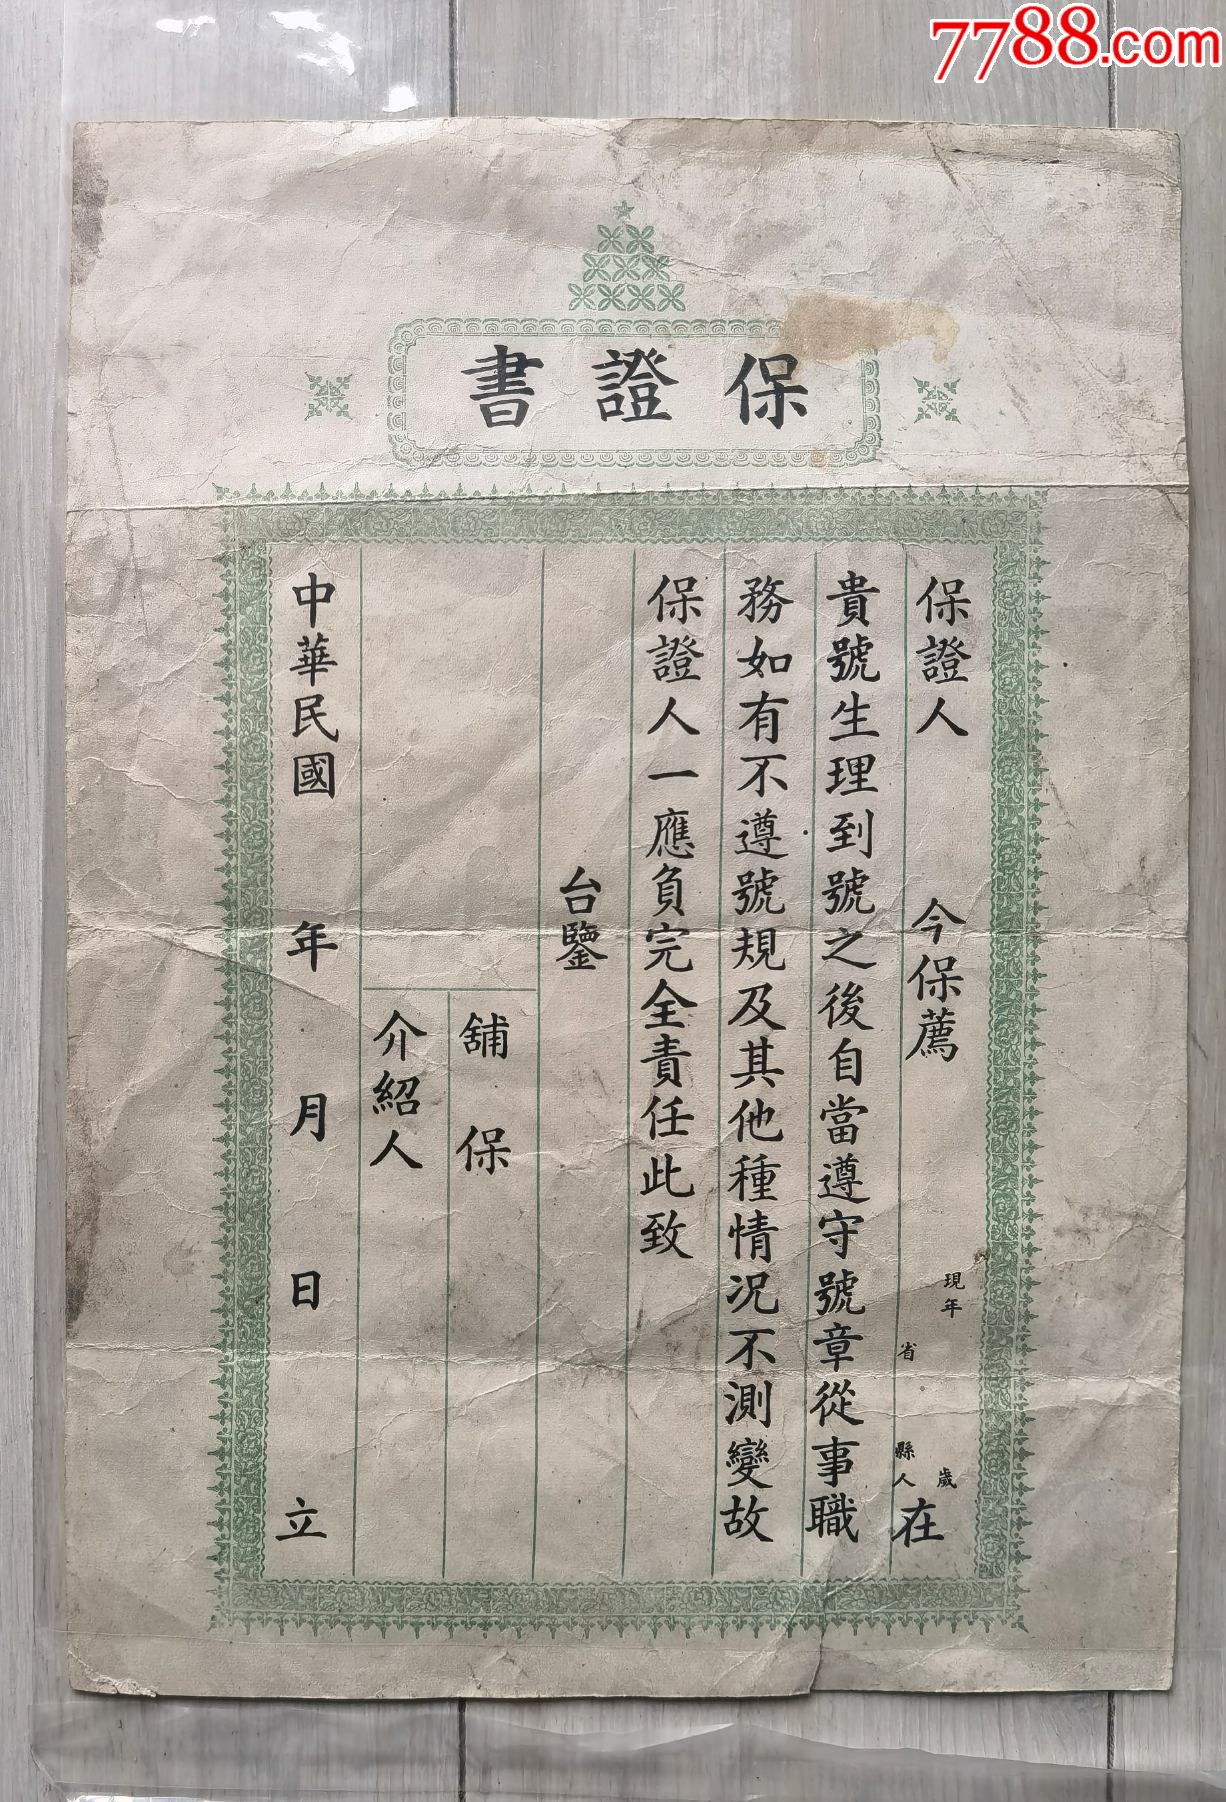 7788.com
保證書
保證人 今保薦 現年 歲 省 縣人 在
貴號生理到號之後自當遵守號章從事職
務如有不遵號規及其他種情況不測變故
保證人一應負完全責任此致
台鑒
舖保
介紹人
中華民國 年 月 日 立